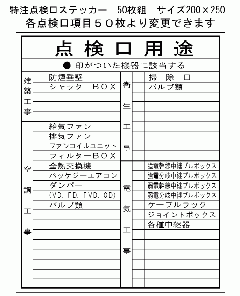 特注点検口ステッカー 50枚組 サイズ200×250
各点検口項目50枚より変更できます
点検口用途
● 印がついた機器に該当する
建築工事
防煙垂壁
シャッターBOX
衛生工事
掃除口
バルブ類
空調工事
給気ファン
排気ファン
ファンコイルユニット
フィルターBOX
全熱交換機
パッケージエアコン
ダンパー
(VD、FD、MVD、CD)
バルブ類
電気工事
強電幹線中継プルボックス
強電分岐中継プルボックス
弱電幹線中継プルボックス
弱電分岐中継プルボックス
ケーブルラック
ジョイントボックス
各種中継器